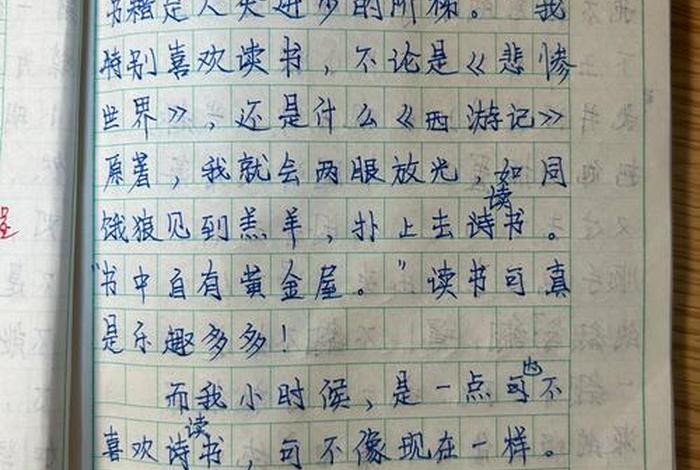 书籍是人类进步的阶梯。 我
特别喜欢读书，不论是《悲惨
世界》，还是什么《西游记》
原著，我就会两眼放光，如同
饿狼见到羔羊，扑上去读书。
"书中自有黄金屋。"读书可真
是乐趣多多！
而我小时候，是一点也不
喜欢读书，可不像现在一样。